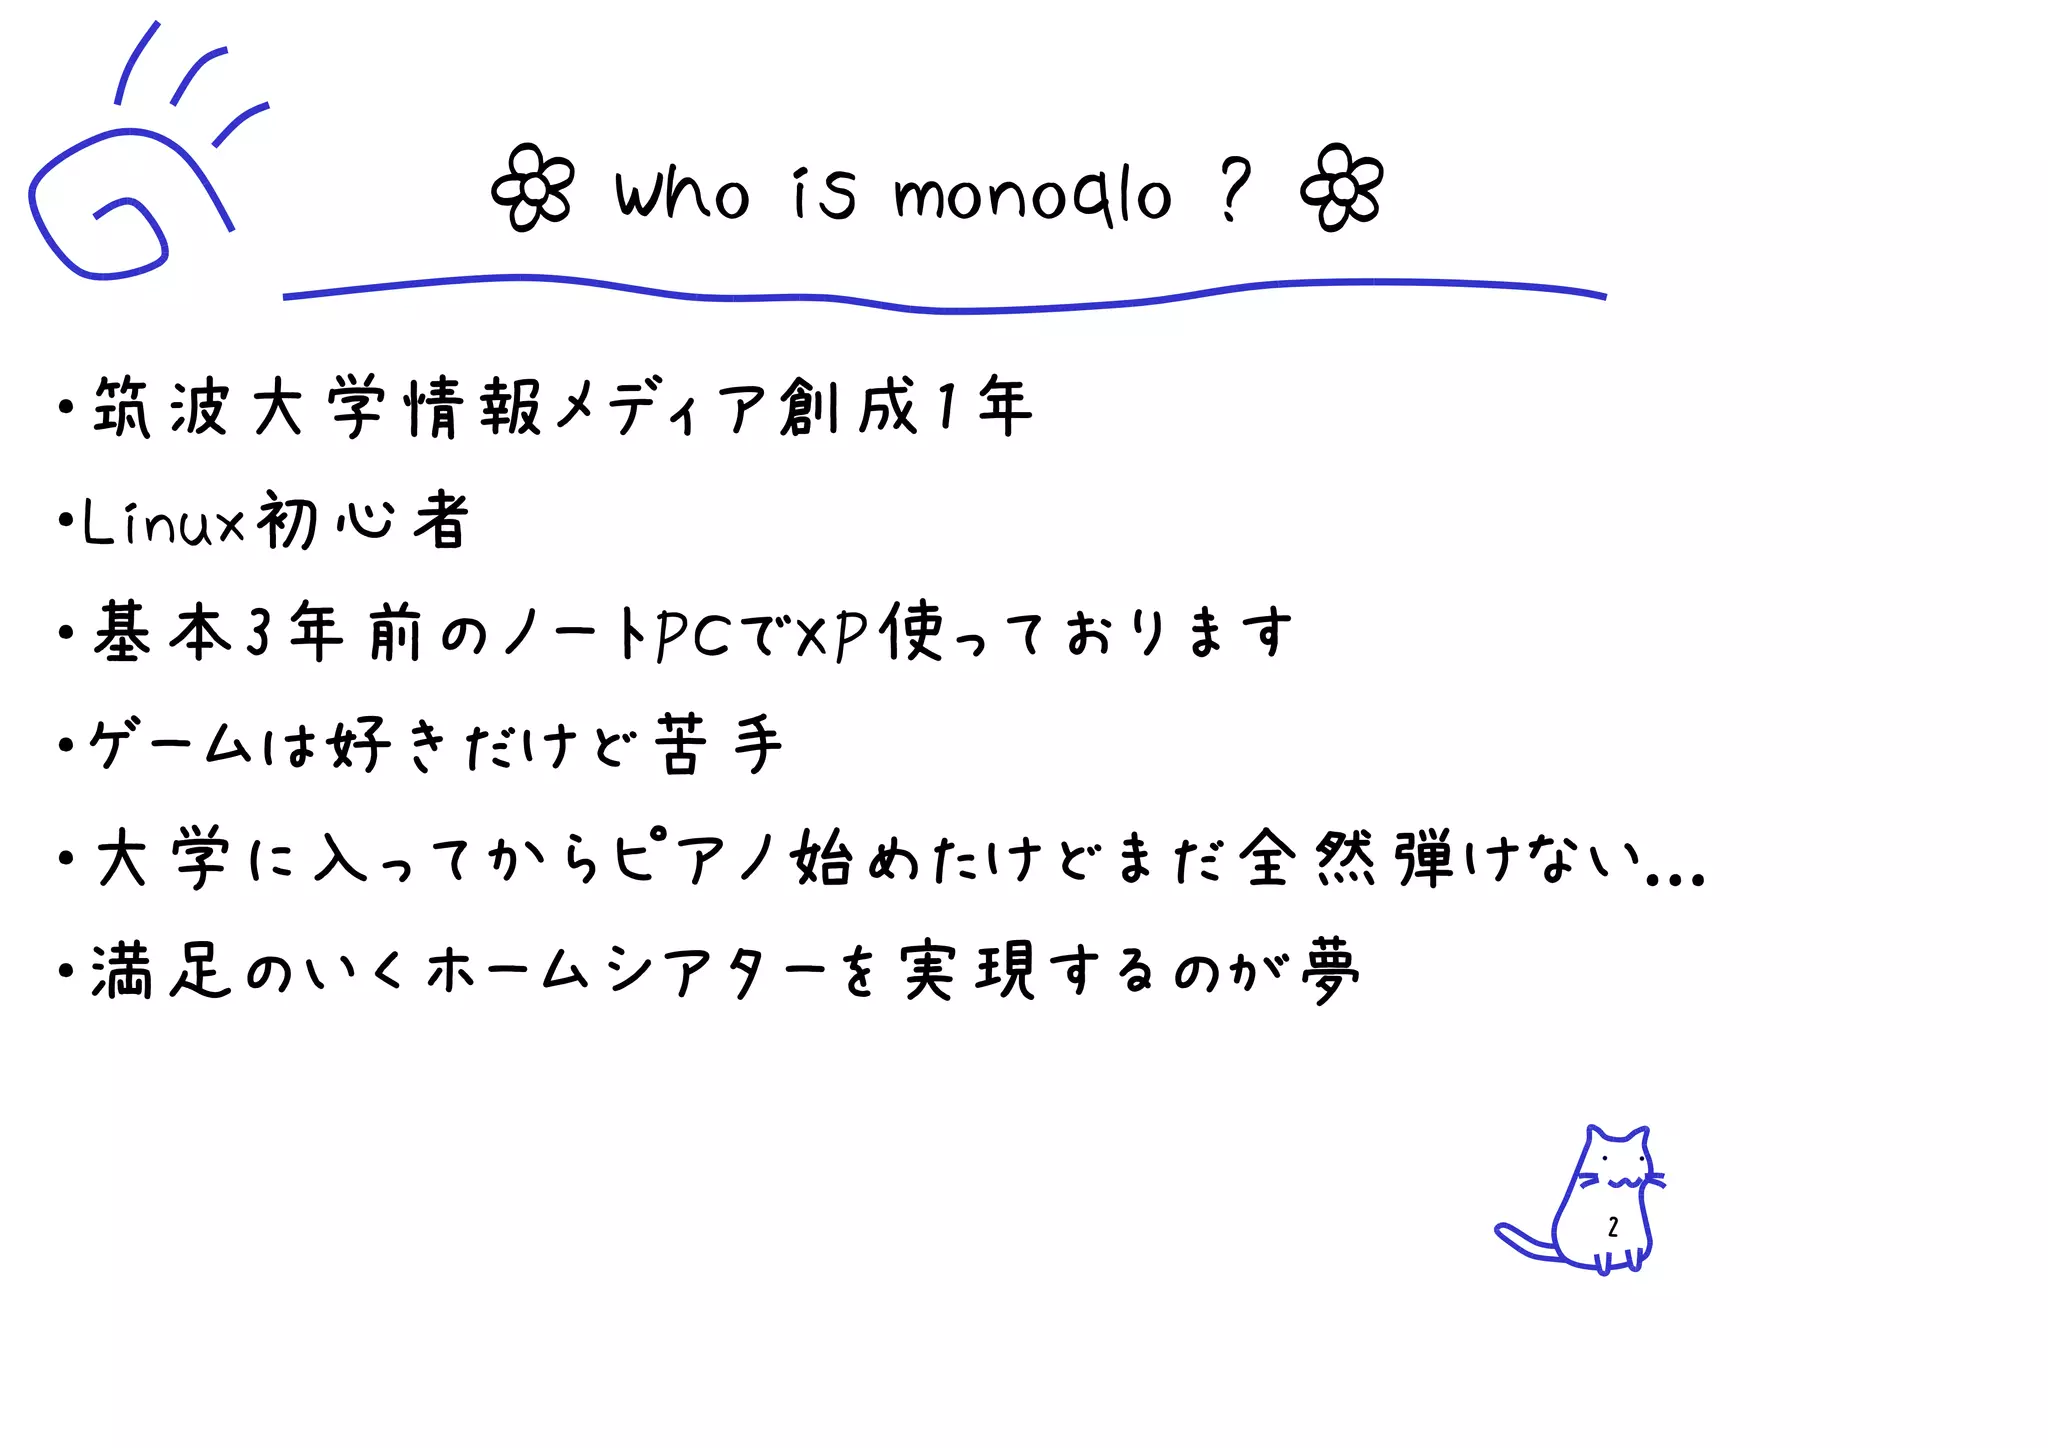 who is monoqlo ?
・筑波大学情報メディア創成1年
・Linux初心者
・基本3年前のノートPCでXP使っております
・ゲームは好きだけど苦手
・大学に入ってからピアノ始めたけどまだ全然弾けない...
・満足のいくホームシアターを実現するのが夢
2